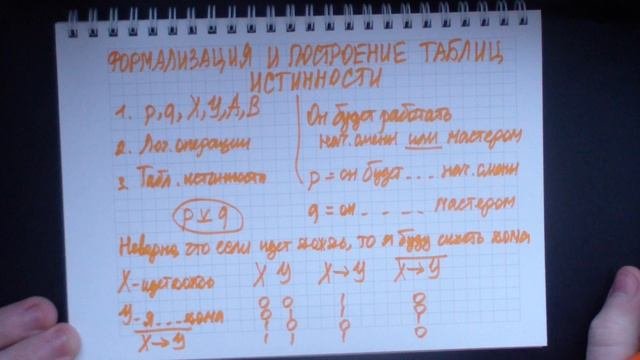 ФОРМАЛИЗАЦИЯ И ПОСТРОЕНИЕ ТАБЛИЦ
ИСТИННОСТИ
1. p, q, X, Y, A, B
2. Лог. операции
3. Табл. истинности
p ⊻ q
Он будет работать
нач. смены или мастером
p = он будет .... нач. смены
q = он - - - - мастером
Неверно, что если идет дождь, то я буду сидеть дома
X - идет дождь
Y - я ... дома
X→Y
X Y X→Y X→Y
0 0 1 0
0 1 1 0
1 0 0 1
1 1 1 0